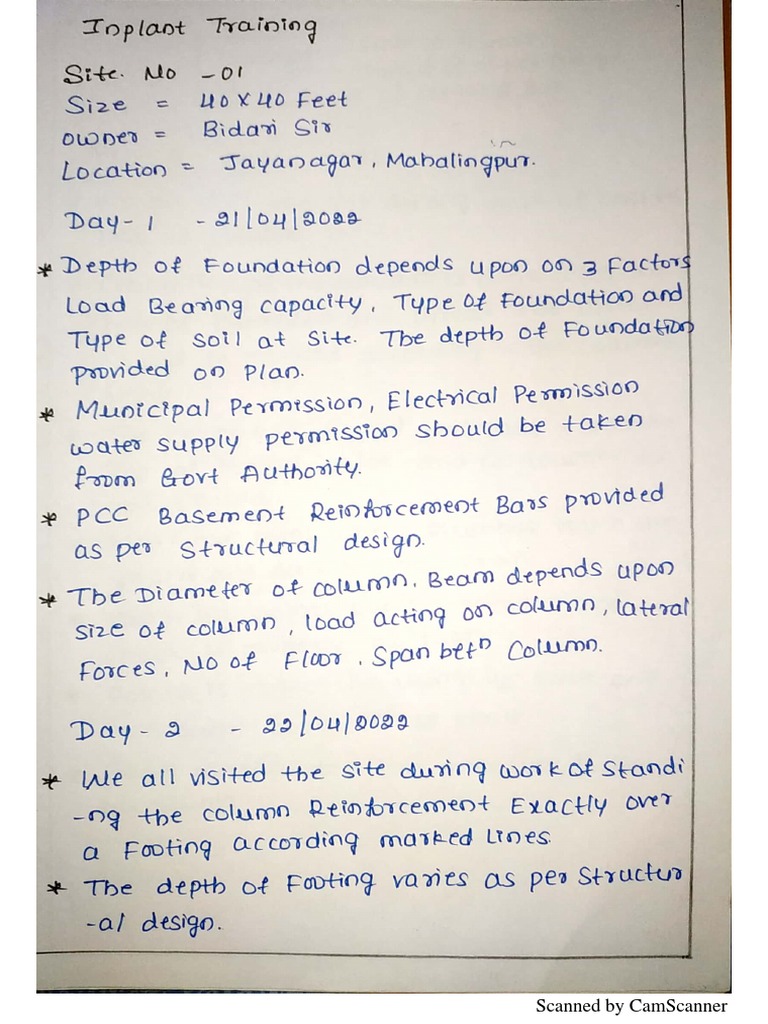 Inplant Training
Site. No - 01
Size = 40 X 40 Feet
Owner = Bidari Sir
Location = Jayanagar, Mahalingpur.
Day - 1 - 21/04/2022
* Depth of Foundation depends upon on 3 Factors
Load Bearing capacity, Type Of Foundation and
Type of soil at Site. The depth of Foundation
provided on Plan.
* Municipal Permission, Electrical Permission
water supply permission should be taken
from Govt Authority.
* PCC Basement Reinforcement Bars provided
as per Structural design.
* The Diameter of column, Beam depends upon
size of column, load acting on column, lateral
Forces, No of Floor, Span betn Column.
Day - 2 - 22/04/2022
* We all visited the site during work of Standi
-ng the column Reinforcement Exactly over
a Footing according marked lines.
* The depth of Footing varies as per Structur
-al design.
Scanned by CamScanner